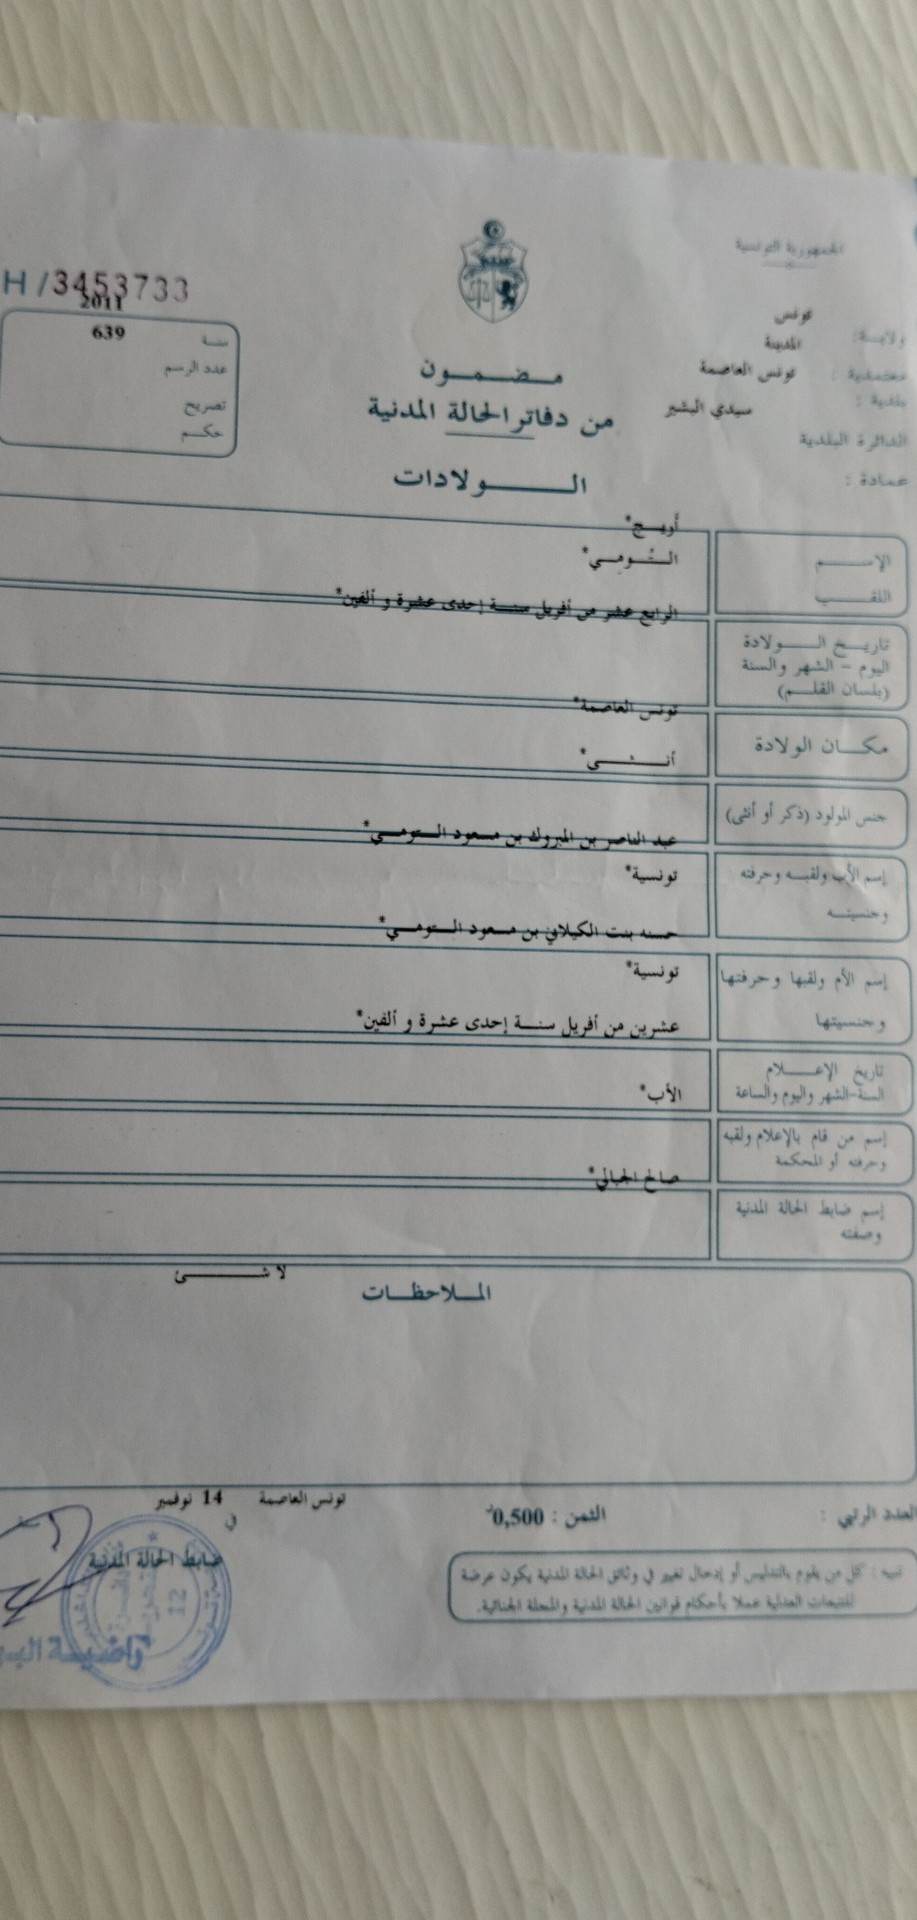 الجمهورية التونسية
H /3453733
2011
ولاية:
تونس
معتمدية :
المدينة
بلدية :
تونس العاصمة
الدائرة البلدية
سيدي البشير
عمادة :
سنة
639
عدد الرسم
تصريح
حكم
مضمون
من دفاتر الحالة المدنية
الولادات
الإسم
أريج*
اللقب
التومي*
تاريخ الولادة
اليوم - الشهر والسنة
(بلسان القلم)
الرابع عشر من أفريل سنة إحدى عشرة و ألفين*
مكان الولادة
تونس العاصمة*
جنس المولود (ذكر أو أنثى)
أنثى*
إسم الأب ولقبه وحرفته
وجنسيته
عبد الناصر بن المبروك بن مسعود التومي*
تونسية*
إسم الأم ولقبها وحرفتها
وجنسيتها
حسنه بنت الكيلاني بن مسعود التومي*
تونسية*
تاريخ الإعلام
السنة-الشهر واليوم والساعة
عشرين من أفريل سنة إحدى عشرة و ألفين*
إسم من قام بالإعلام ولقبه
وحرفته أو المحكمة
الأب*
إسم ضابط الحالة المدنية
وصفته
صالح الجبالي*
الملاحظات
لا شئ
العدد الرتبي :
الثمن : 0,500
تونس العاصمة
في
14 نوفمبر
ضابط الحالة المدنية
تنبيه : كل من يقوم بالتدليس أو إدخال تغيير في وثائق الحالة المدنية يكون عرضة
للتتبعات العدلية عملا بأحكام قوانين الحالة المدنية والمجلة الجنائية.
12